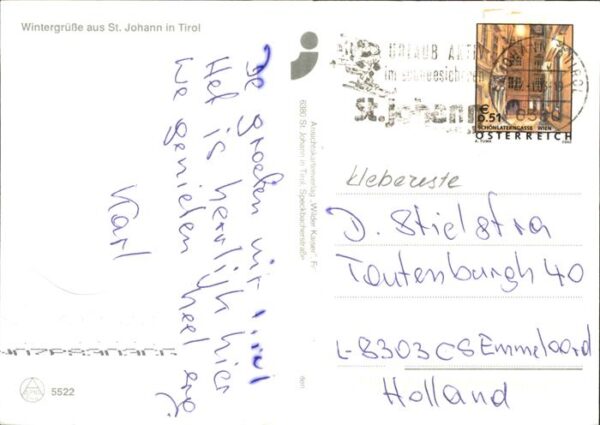 Wintergrüße aus St. Johann in Tirol
De groeten uit Tirol
Het is herrlijch hier
We genieten heel erg.
Karl
Ansichtskartenverlag "Wilder Kaiser", F.
6380 St. Johann in Tirol, Speckbacherstraße
URLAUB AKTIV
im schneesicheren
st. johann
6380
€
0.51
SCHÖNLATERNGASSE WIEN
ÖSTERREICH
klebereste
D. Stielstra
Toutenburgh 40
L-8303 CS Emmeloord
Holland
5522